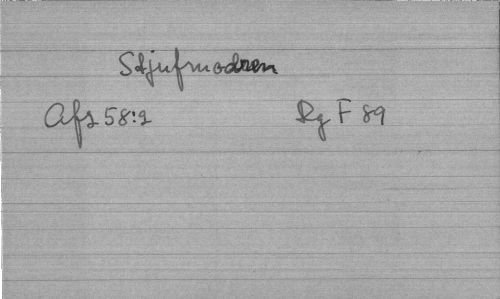 Stjufmodren
Afs 58:2 Rg F 89